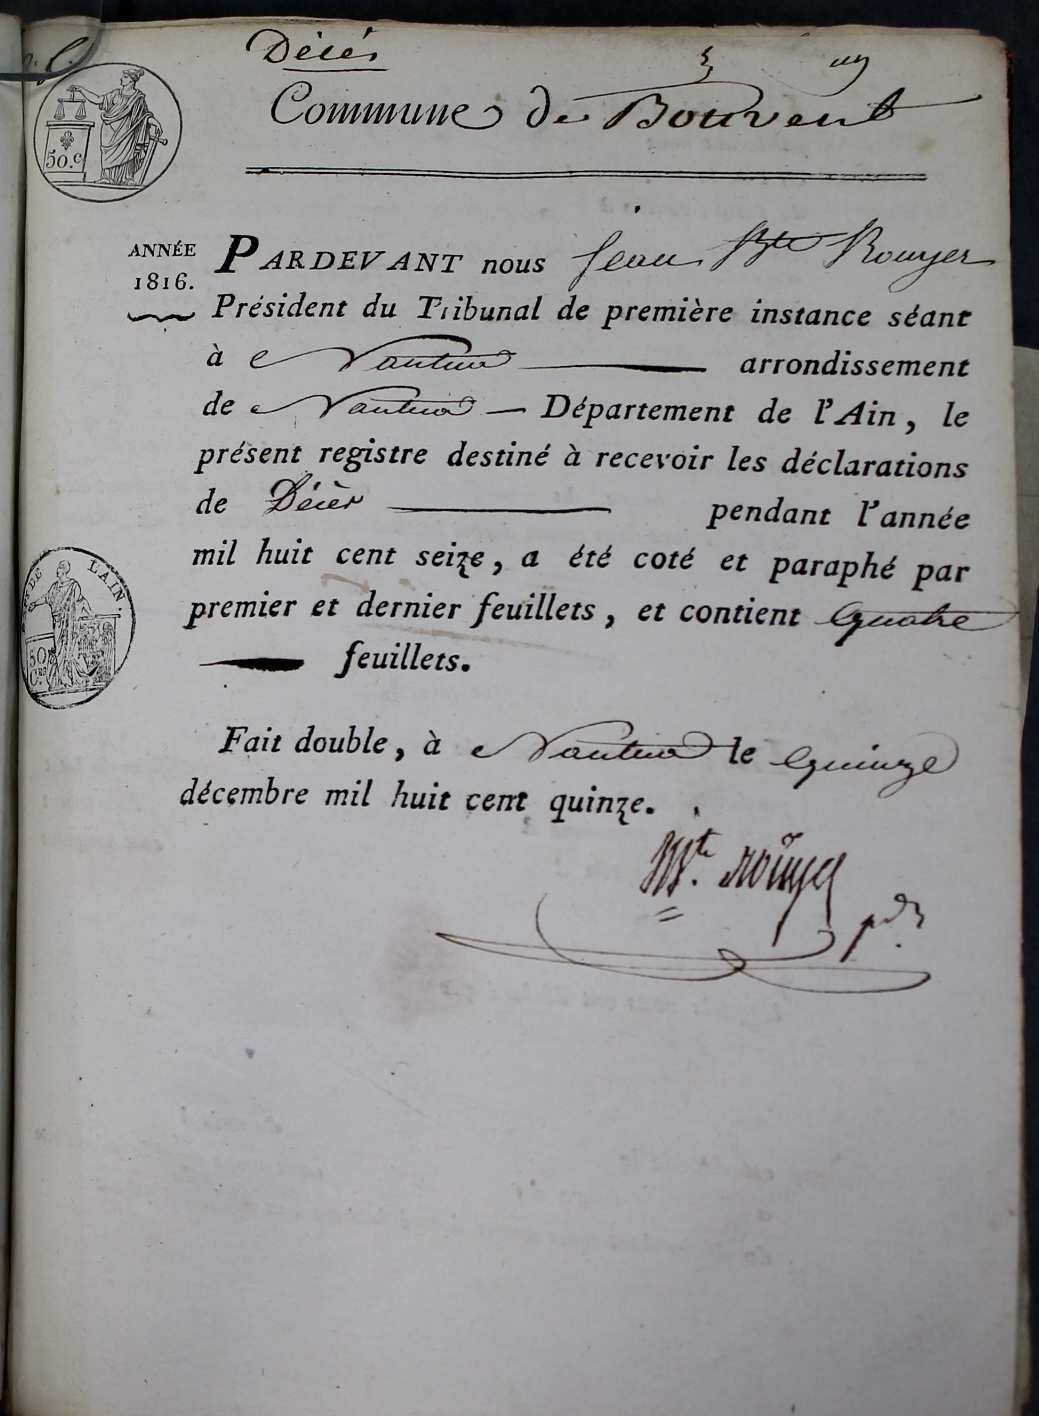 Décés
Commune de Bouvent
50.c
ANNÉE
1816.
PARDEVANT nous Jean Bte Rouyer
Président du Tribunal de première instance séant
à Nantua arrondissement
de Nantua Département de l'Ain, le
présent registre destiné à recevoir les déclarations
de Décès pendant l'année
mil huit cent seize, a été coté et paraphé par
premier et dernier feuillets, et contient quatre
feuillets.
DE L'AIN.
50
Fait double, à Nantua le quinze
décembre mil huit cent quinze.
Bte. rouyer
pdt